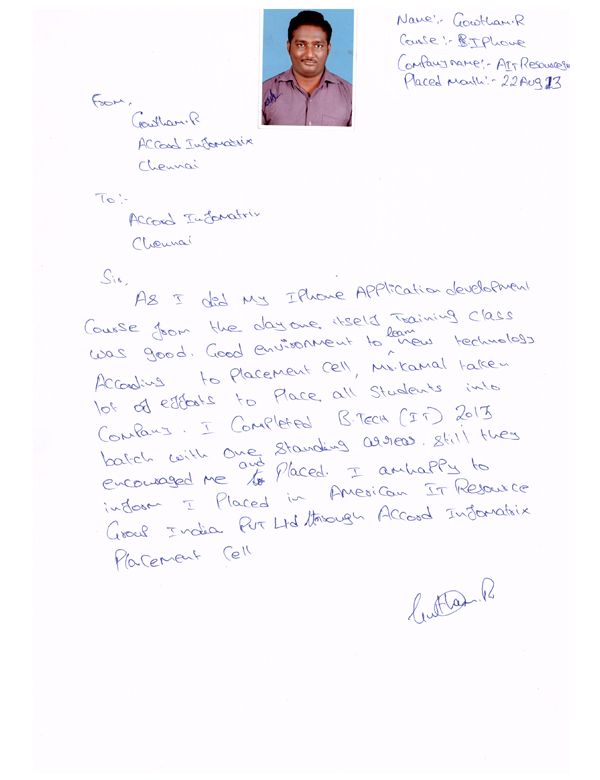 Name:- Gowtham.R
Course:- IPhone
Company name:- AIT Resources
Placed Month:- 22 Aug 13
From,
Gowtham.R
Accord Infomatrix
Chennai
To:-
Accord Infomatrix
Chennai
Sir,
As I did My IPhone Application development
Course from the day one itself Training class
was good. Good environment to learn new technology
According to Placement Cell, Mr.Kamal taken
lot of efforts to Place all Students into
Company. I Completed B.Tech (IT) 2013
batch with one standing arrear. Still they
encouraged me and Placed. I am happy to
inform I Placed in American IT Resource
Group India PVT Ltd through Accord Infomatrix
Placement Cell
Gowtham.R